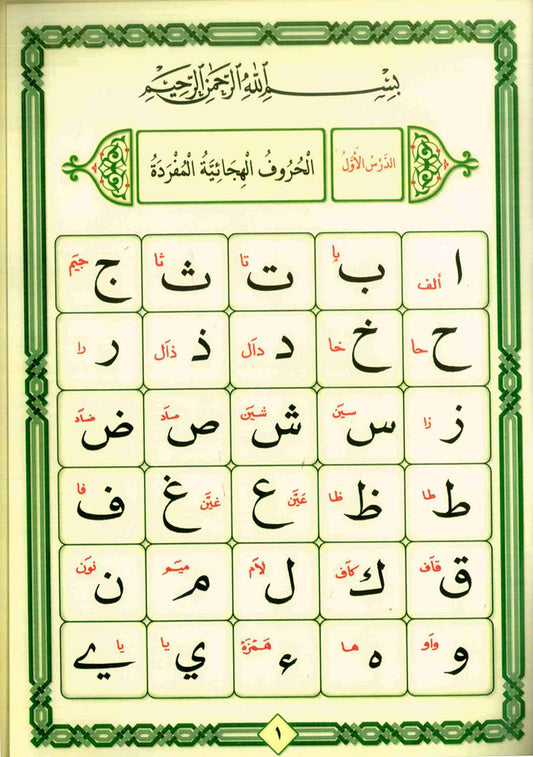 بِسْمِ اللهِ الرَّحْمٰنِ الرَّحِيْمِ
الدَّرْسُ الْأَوَّلُ الْحُرُوفُ الْهِجَائِيَّةُ الْمُفْرَدَةُ
ا ألف ب با ت تا ث ثا ج جيم
ح حا خ خا د دال ذ ذال ر را
ز زا س سين ش شين ص صاد ض ضاد
ط طا ظ ظا ع عين غ غين ف فا
ق قاف ك كاف ل لام م ميم ن نون
و واو ه ها ء همزة ي يا ے يا
١